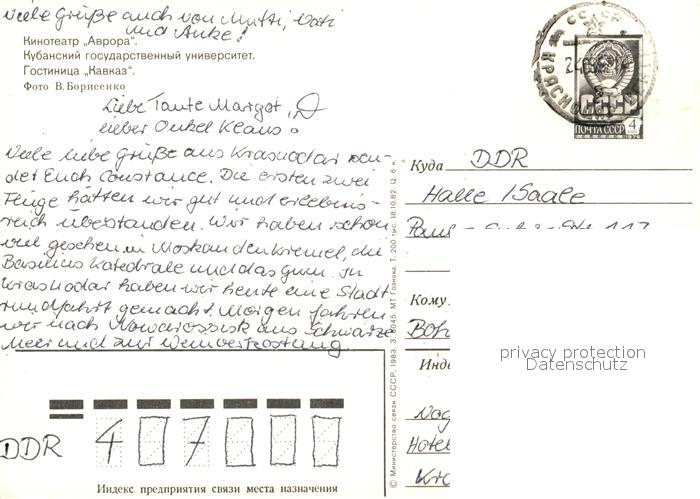 Viele Grüße auch von Mutti, Vati
und Anke!
Кинотеатр „Аврора“.
Кубанский государственный университет.
Гостиница „Кавказ“.
Фото В. Борисенко
Liebe Tante Margot,
lieber Onkel Klaus!
Viele liebe Grüße aus Krasnodar sen-
det Euch Constance. Die ersten zwei
Flüge hätten wir gut und erlebnis-
reich überstanden. Wir haben schon
viel gesehen in Moskau den Kreml, die
Basilius Katedrale und das Gum. In
Krasnodar haben wir heute eine Stadt
rundfahrt gemacht. Morgen fahren
wir nach Nowarossisk ans Schwarze
Meer und zur Weinverkostung
СССР
ПОЧТА СССР 4
Куда DDR
Halle /Saale
Кому
Инде
Hotel
privacy protection
Datenschutz
© Министерство связи СССР. 1983. З. 8045. МТ Гознака. Т. 200 тыс. 18.10.82. Ц. 6 к.
DDR 407000
Индекс предприятия связи места назначения